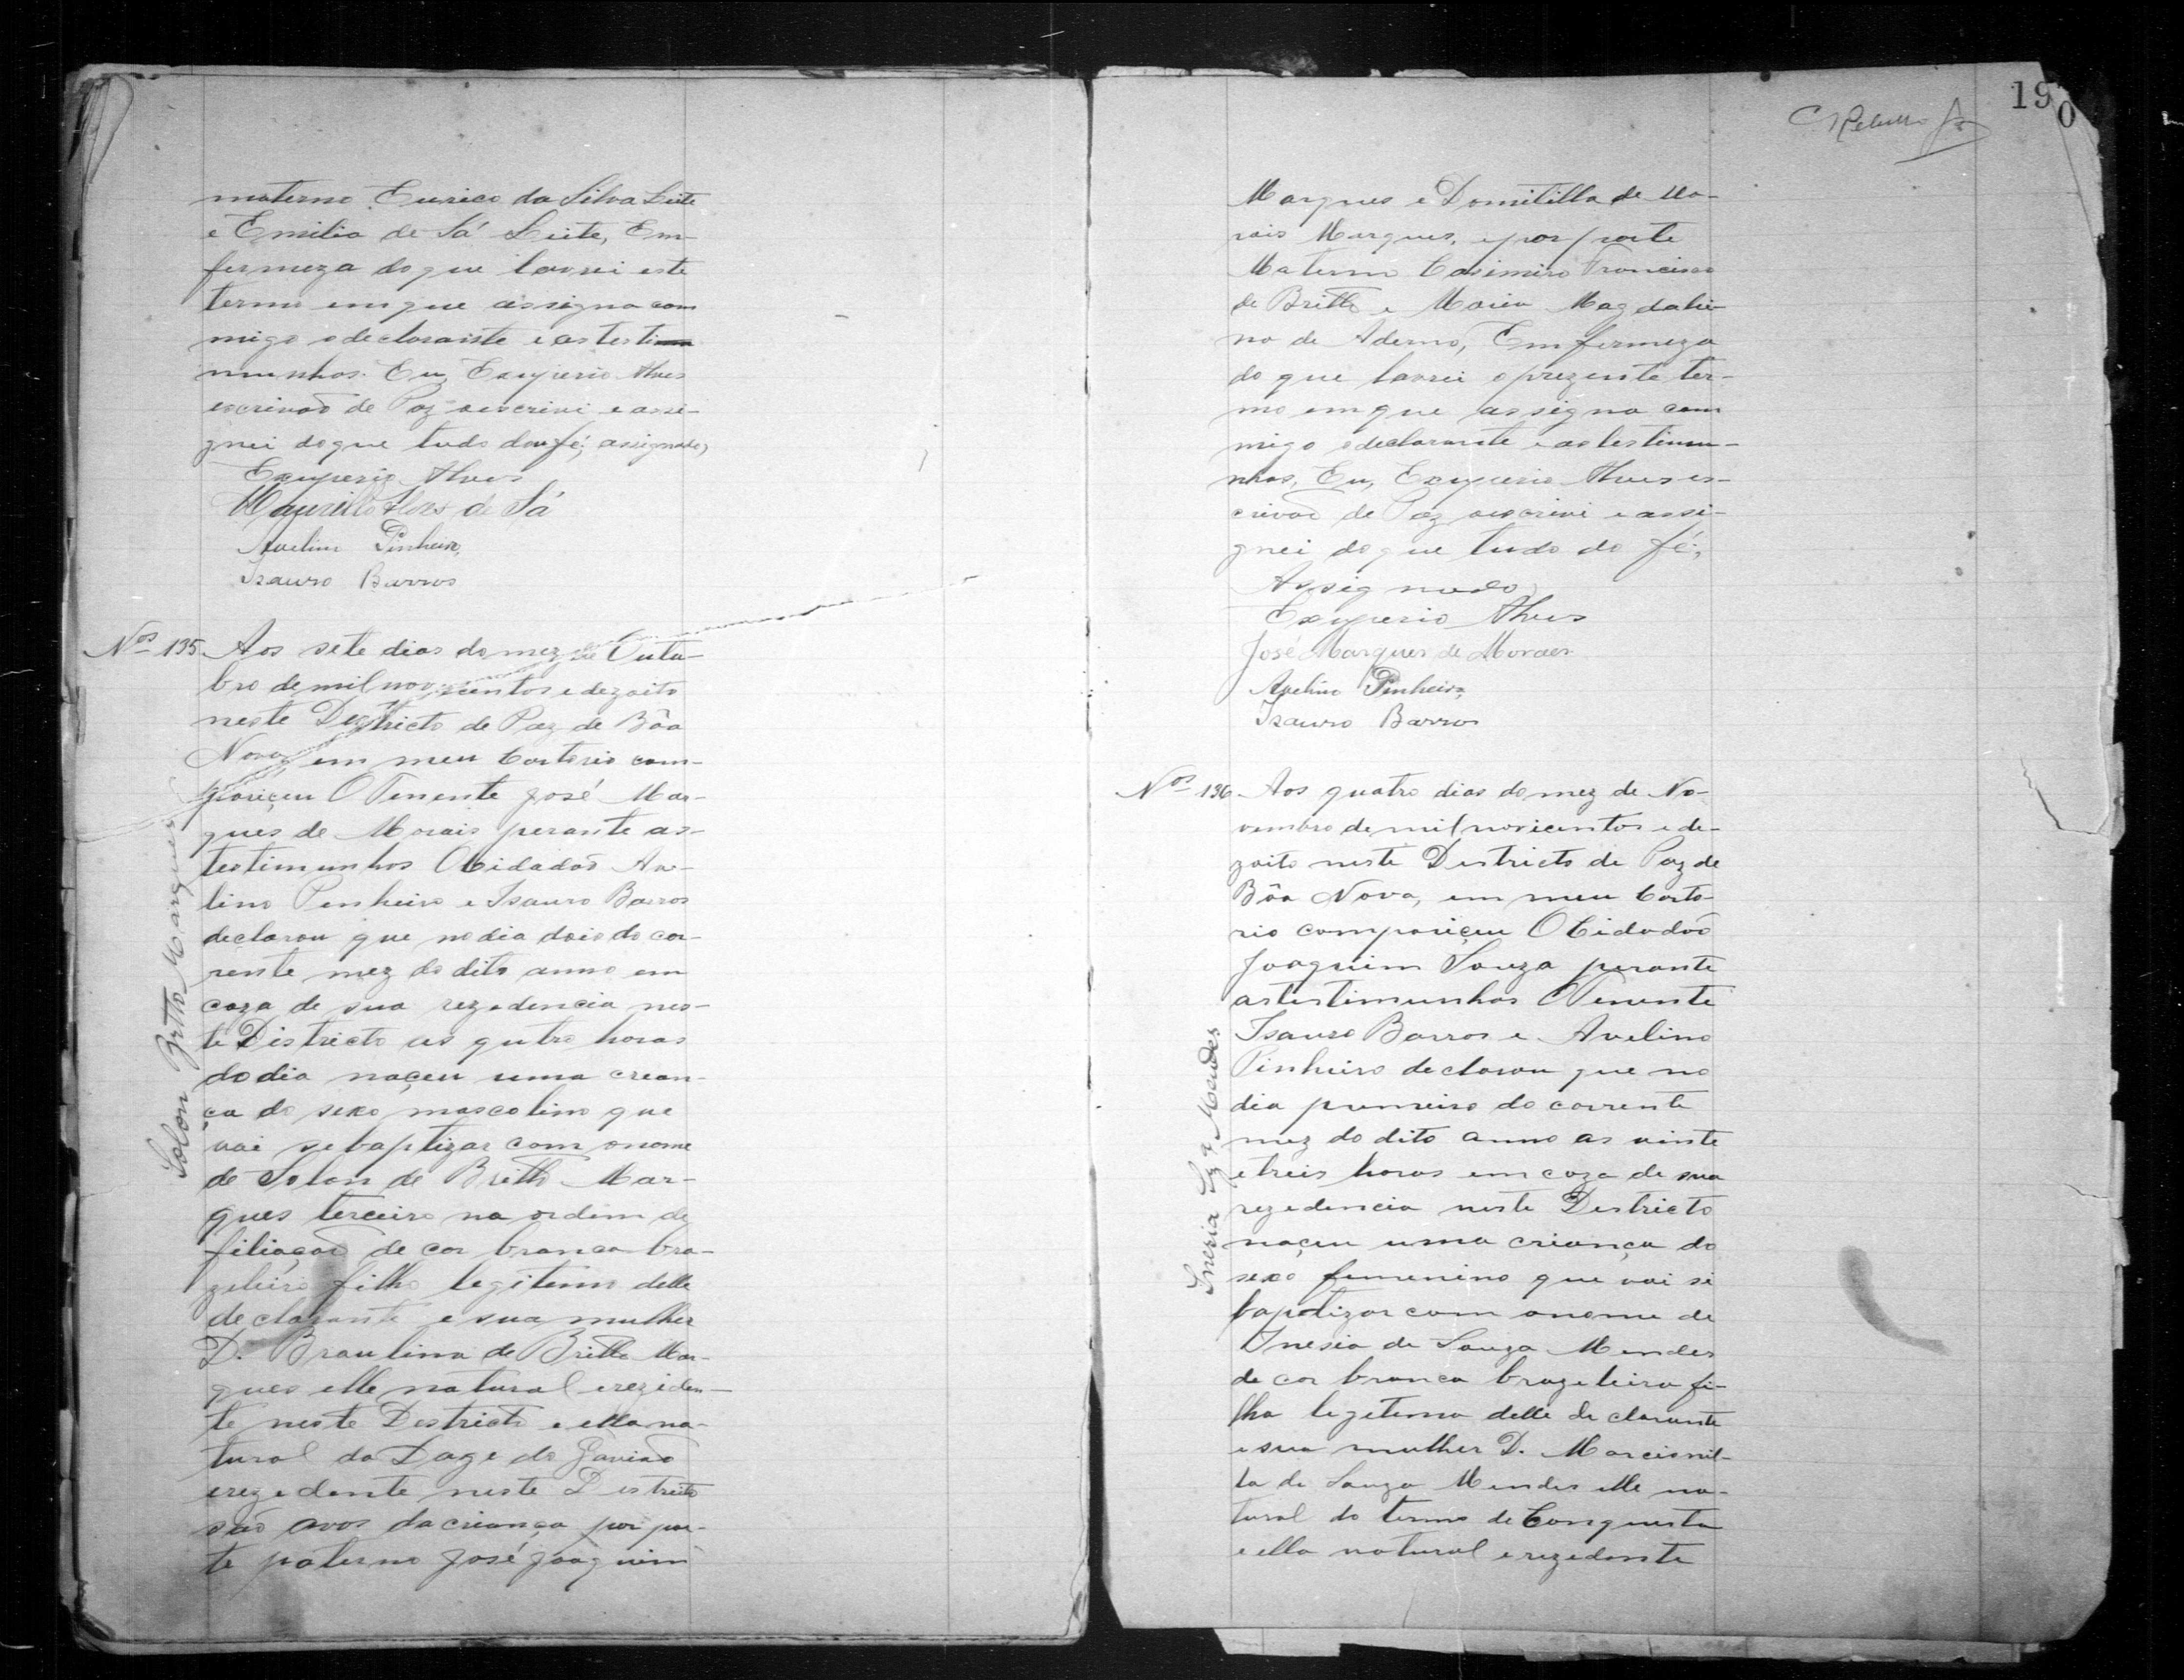 materno Eurico da Silva Leite
e Emilia de Sá Leite, Em
fermeza do que lavrei este
termo em que assigna com
migo o declarante e as testi
munhas. Eu, Exuperio Alves
escrivaõ de Paz o escrivi e assi-
gnei do que tudo dou fé; assignados,
Exuperio Alves
Maurillo Alves de Sá
Avelino Pinheiro,
Isauro Barros
Nos 135. Aos sete dias do mez de Outu-
bro de mil novicentos e dezoito
neste Destricto de Paz de Bôa
Nova, em meu Cartorio com-
pariçeu O Tenente José Mar-
ques de Morais perante as
testimunhas O Cidadaõ Av-
lino Penheiro e Isauro Barros
declarou que no dia dois do cor-
rente mez do dito anno em
caza de sua rezedencia nes-
te Districto as qutro horas
do dia naçeu uma crean-
ça do sexo mascolino que
vai se baptizar com o nome
de Solon de Britto Mar-
ques terceiro na ordem de
filiaçaõ de cor branca bra-
zeleiro filho legitimo delle
declarante e sua mulher
D. Braulina de Britto Mar-
ques elle natural e reziden-
te neste Destricto e ella na-
tural da Lage do Gaviaõ
e rezedente neste Destricto
saõ avos da criança por par-
te paterno José Joaquim
Solon Britto Marques
190
C Rebello
Marques e Domitilla de Mo-
rais Marques, e por parte
Materno Casimiro Francisco
de Britto e Maria Magdale-
na de Aderno, Em fermeza
do que lavrei o prezente ter-
mo em que assigna com
migo o declarante e as testimu-
nhas, Eu, Exuperio Alves es-
crivaõ de Paz o escrivi e assi-
gnei do que tudo do fé;
Assignado,
Exuperio Alves
José Marques de Moraes
Avelino Pinheiro,
Isauro Barros
Nos 136. Aos quatro dias do mez de No-
vembro de mil novicentos e de-
zoito neste Destricto de Paz de
Bôa Nova, em meu Carto-
rio compariçeu O Cidadaõ
Joaquim Souza perante
as testimunhas O Tenente
Isauro Barros e Avelino
Pinheiro declarou que no
dia premeiro do corrente
mez do dito anno as vinte
e treis horas em caza de sua
rezedencia neste Destricto
naçeu uma criança do
sexo femenino que vai si
baptizar com o nome de
Inesia de Souza Mendes
de cor branca brazeleira fi-
lha legetema delle declarante
e sua mulher D. Marcionil-
la de Souza Mendes elle na-
tural do termo de Conquista
e ella natural e rezedente
Inesia Sza Mendes